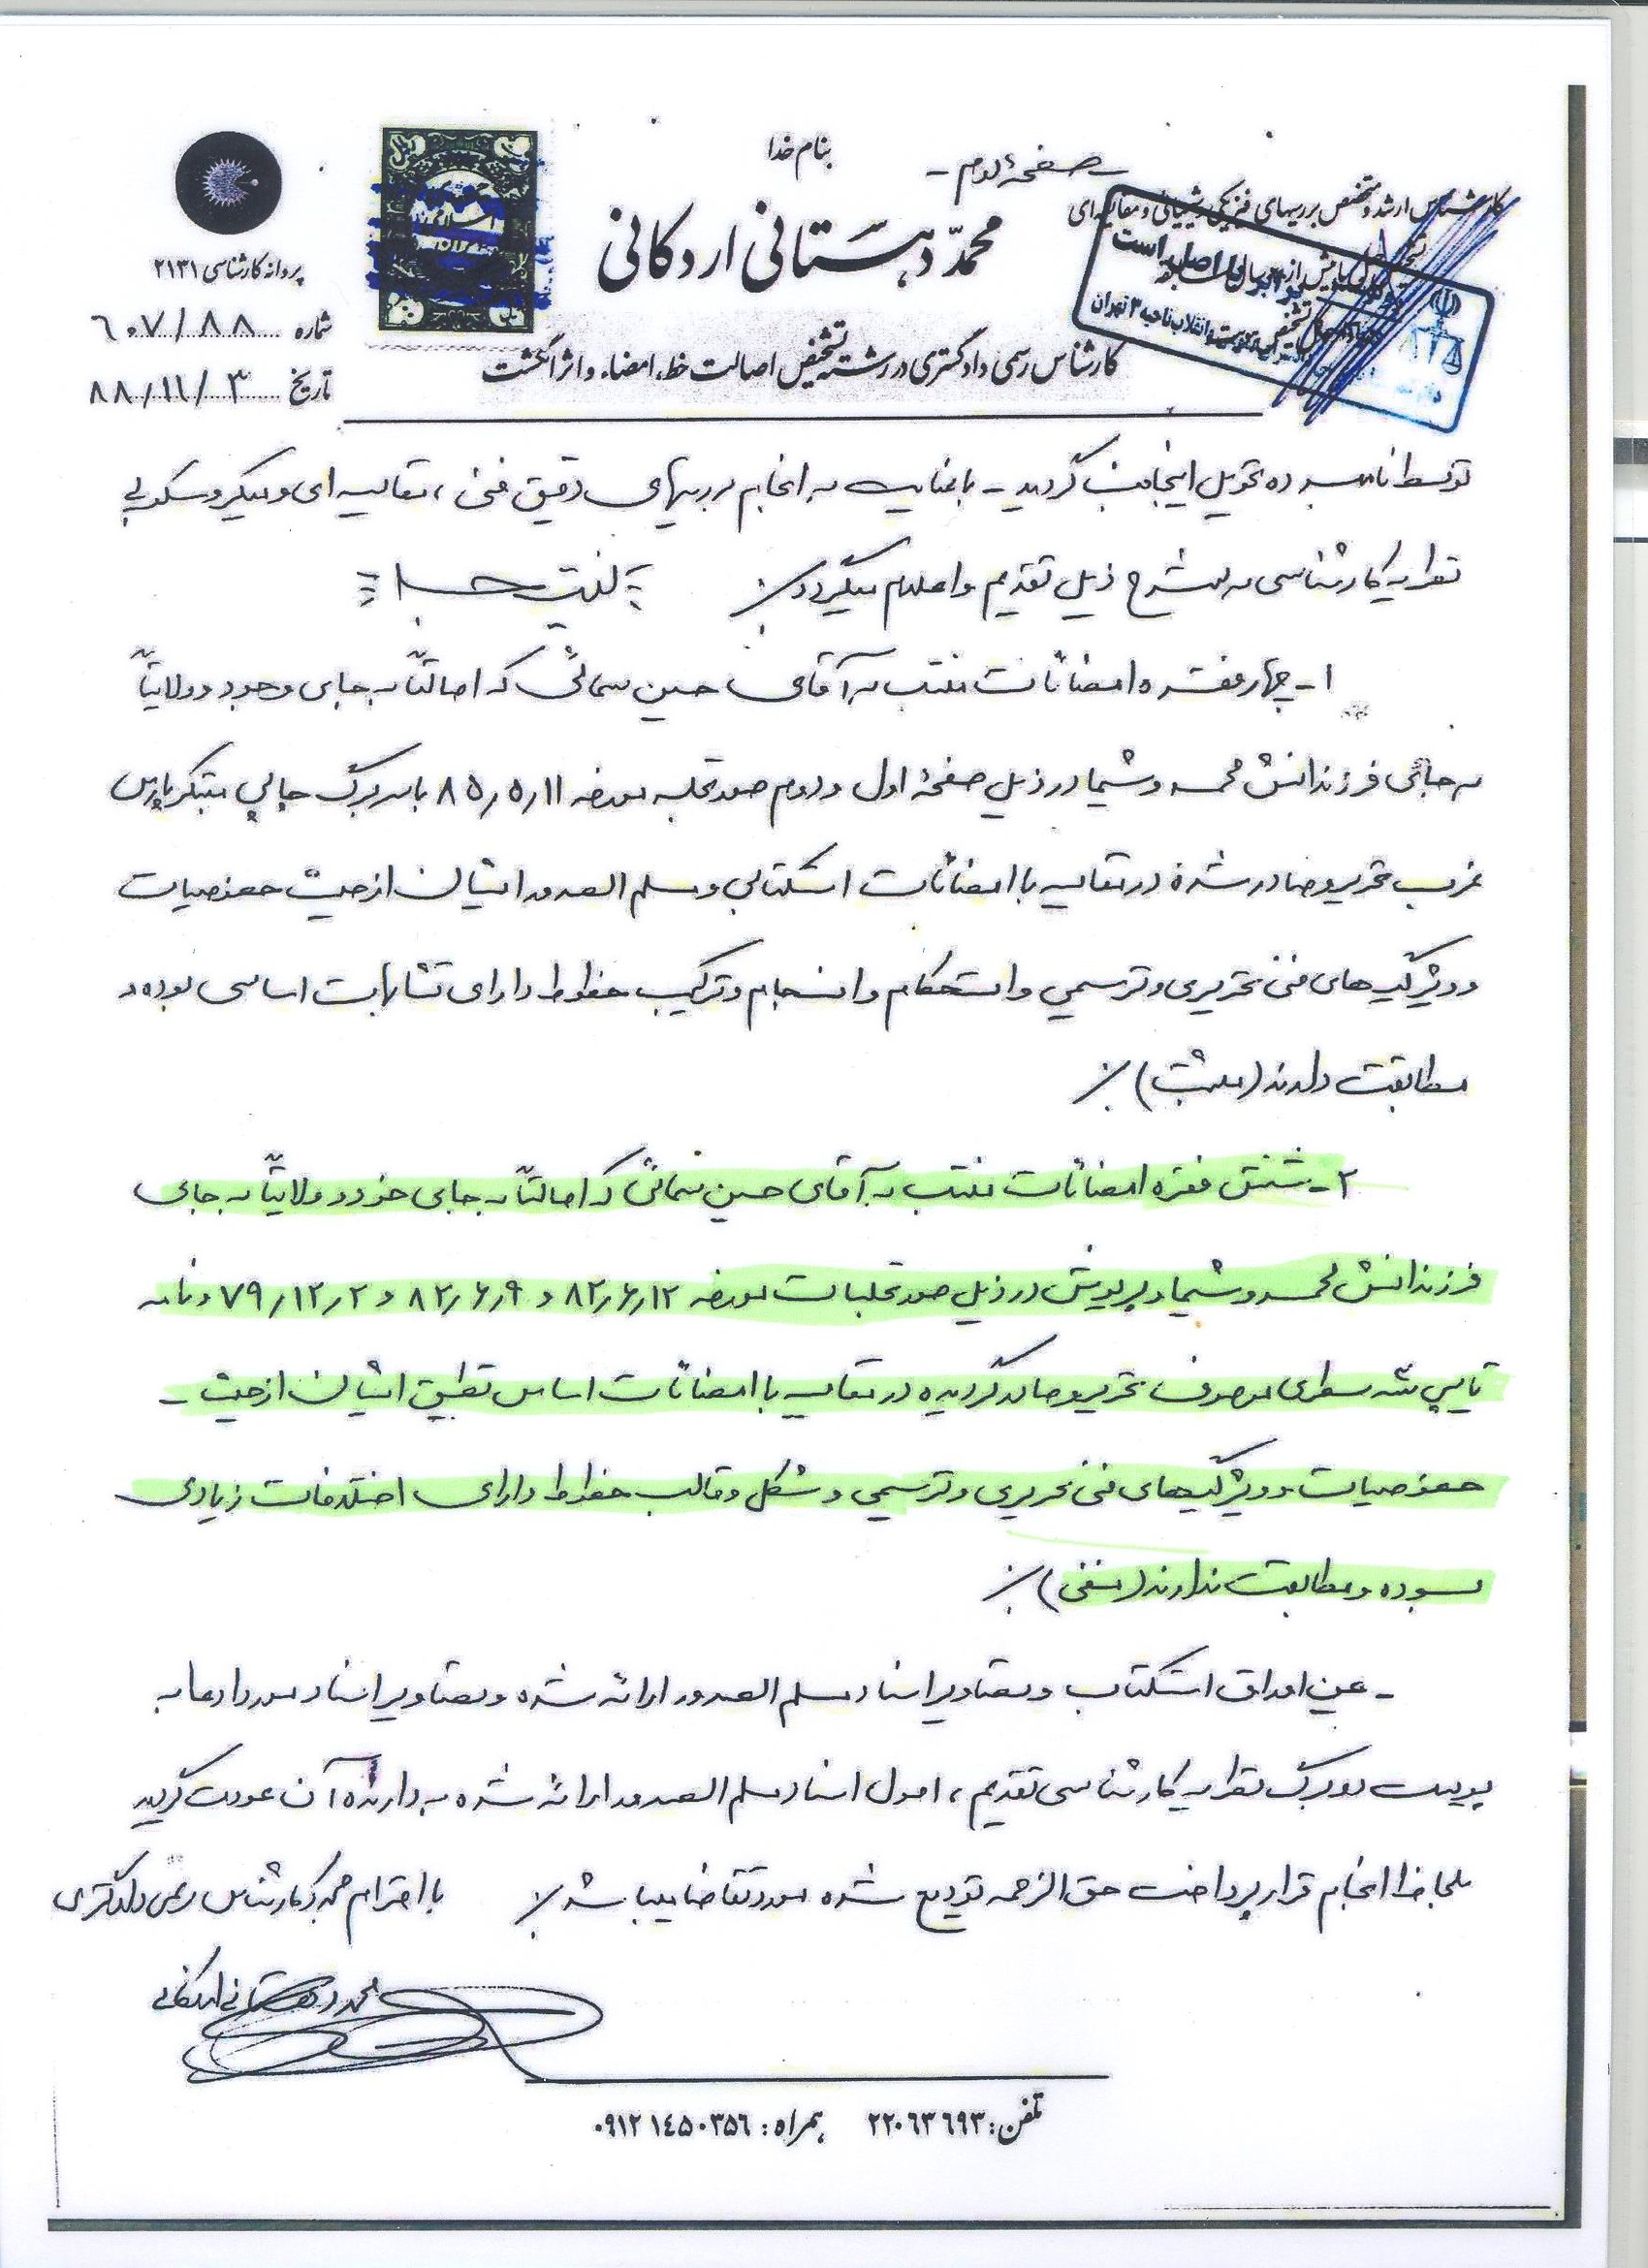 بنام خدا
- صفحهٔ دوم -
محمّد دهستانی اردکانی
کارشناس ارشد و متخصص بررسیهای فیزیکی شیمیائی و مقایسه‌ای
برابر با اصل است
کارشناس رسمی دادگستری در رشته تشخیص اصالت خط، امضاء و اثر انگشت
پروانه کارشناسی ۲۱۳۱
شماره ۶۰۷/۸۸
تاریخ ۸۸/۱۱/۳
توسط نامبرده تحویل اینجانب گردید - با عنایت به انجام بررسیهای دقیق فنی، مقایسه‌ای و میکروسکوپی
نظریه کارشناسی به شرح ذیل تقدیم و اعلام میگردد.
۱- چهار فقره امضائات منتسب به آقای حسین سمائی که اصالتاً به جای خود و ولایتاً
به جای فرزندانش محمد و شیما در ذیل صفحهٔ اول و دوم صورتجلسه مورخه ۸۵/۵/۱۱ با سربرگ چاپی مبتکر پارس
غرب تحریر و صادر شده در مقایسه با امضائات استکتابی و مسلم الصدور ایشان از حیث خصوصیات
و ویژگیهای فنی تحریری و ترسیمی و استحکام و انسجام و ترکیب خطوط دارای تشابهات اساسی بوده و
مطابقت دارند (مثبت)
۲- شش فقره امضائات منتسب به آقای حسین سمائی که اصالتاً به جای خود و ولایتاً به جای
فرزندانش محمد و شیما و پریوش در ذیل صورتجلسات مورخه ۸۲/۶/۱۲ و ۸۲/۶/۹ و ۷۹/۱۲/۲ و نامه
تایپی سه سطری موصوف تحریر و صادر گردیده در مقایسه با امضائات اساس تطبیق ایشان از حیث -
خصوصیات و ویژگیهای فنی تحریری و ترسیمی و شکل و قالب خطوط دارای اختلافات زیادی
بوده و مطابقت ندارند (منفی)
- عین اوراق استکتاب و تصاویر اسناد مسلم الصدور ارائه شده و تصاویر اسناد مورد ادعا به
پیوست دو برگ نظریه کارشناسی تقدیم، اصول اسناد مسلم الصدور ارائه شده به دارنده آن عودت گردید
بلحاظ انجام قرار پرداخت حق الزحمه تودیع شده مورد تقاضا میباشد
با احترام مجدد کارشناس رسمی دادگستری
محمد دهستانی اردکانی
تلفن: ۲۲۰۶۳۶۹۳ همراه: ۰۹۱۲۱۴۵۰۳۵۶